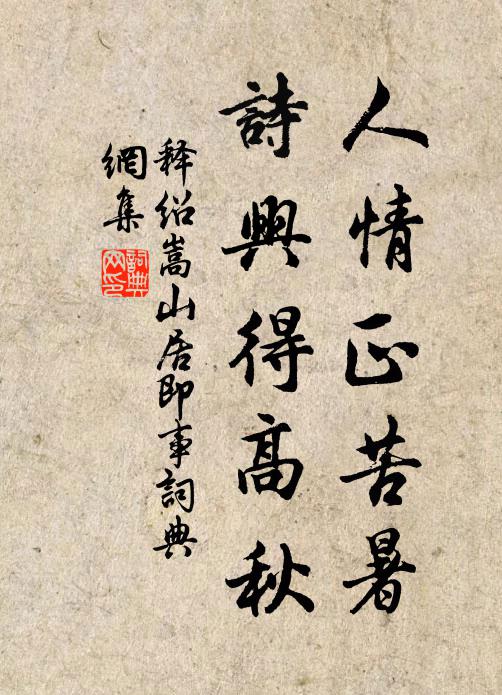 人情正苦暑
詩興得高秋
釋紹嵩山居即事詞典
網集
詞典
网印